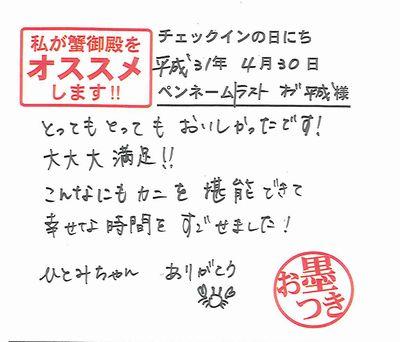 私が蟹御殿を
オススメ
します!!
チェックインの日にち
平成31年 4月30日
ペンネーム ラスト お平成様
とってもとっても おいしかったです!
大大大満足!!
こんなにもカニを堪能できて
幸せな時間をすごせました!
ひとみちゃん ありがとう
お墨つき